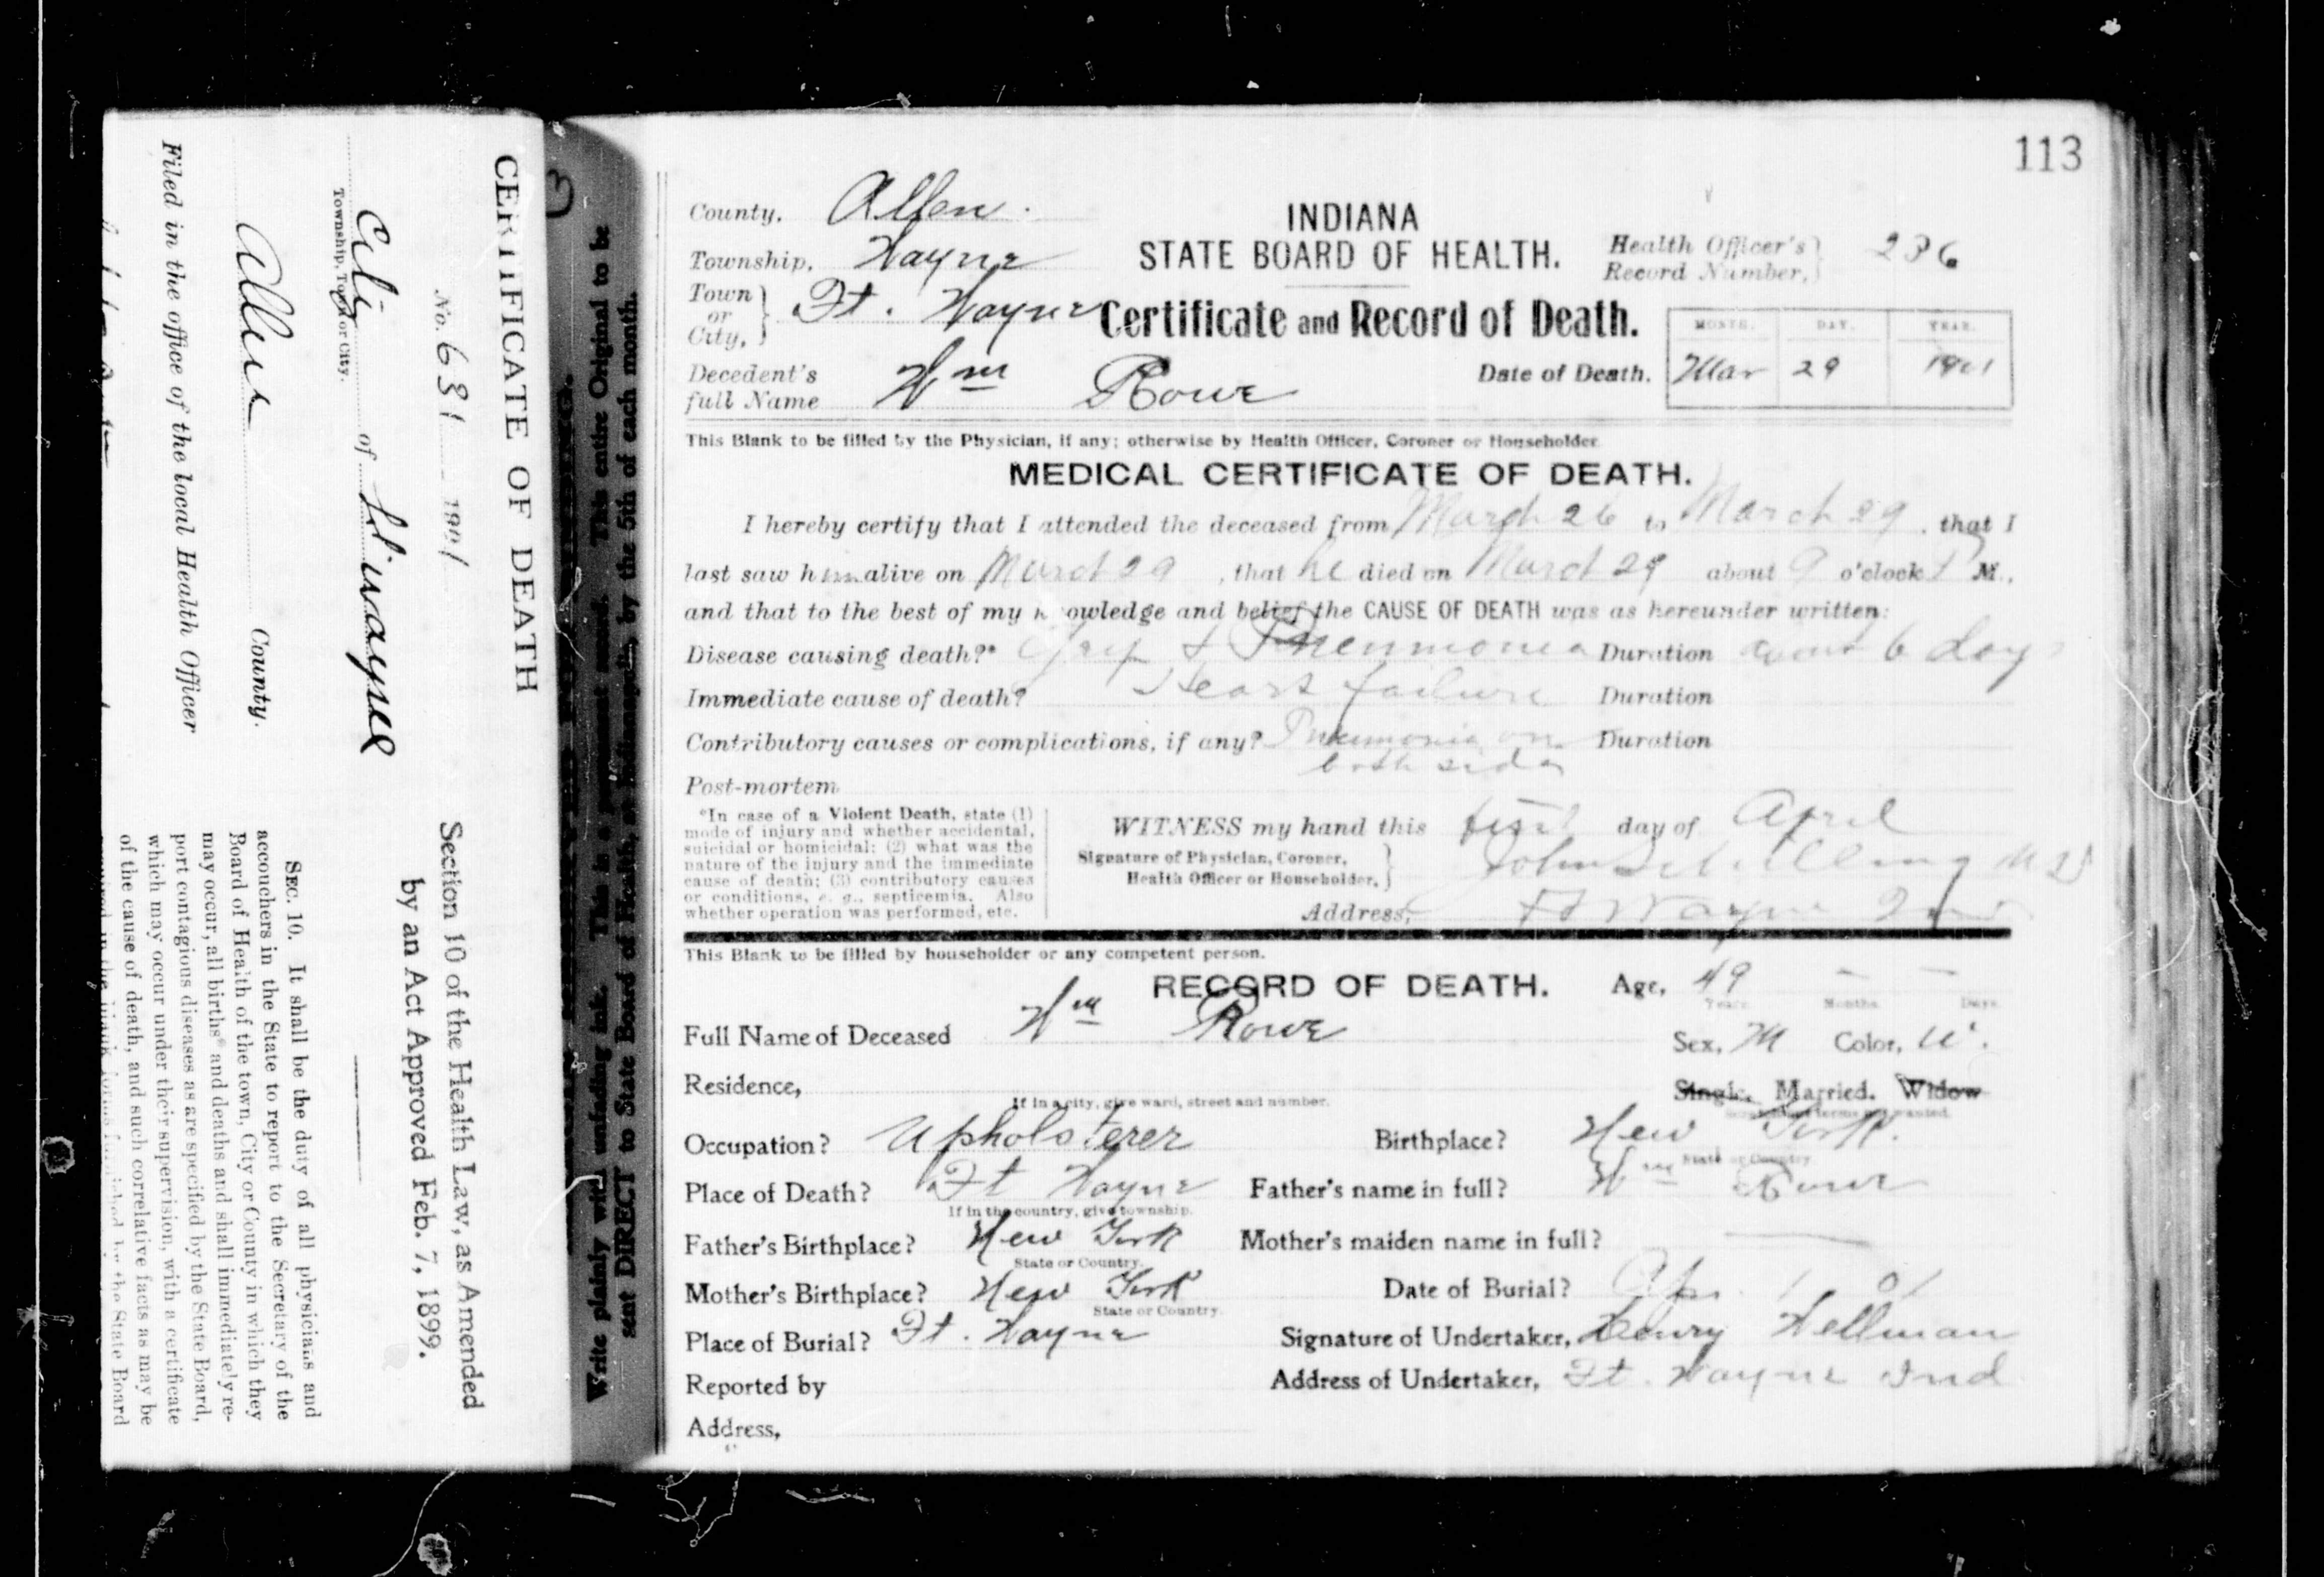 CERTIFICATE OF DEATH
No. 631 1901
City of Ft. Wayne
Township, Town or City.
Allen County.
Filed in the office of the local Health Officer
Section 10 of the Health Law, as Amended
by an Act Approved Feb. 7, 1899.
SEC. 10. It shall be the duty of all physicians and
accouchers in the State to report to the Secretary of the
Board of Health of the town, City or County in which they
may occur, all births* and deaths and shall immediately re-
port contagious diseases as are specified by the State Board,
which may occur under their supervision, with a certificate
of the cause of death, and such correlative facts as may be
Write plainly with unfading ink. This is a permanent record. This entire Original to be
sent DIRECT to State Board of Health, by the 5th of each month.
113
County, Allen.
INDIANA
STATE BOARD OF HEALTH.
Health Officer's Record Number, 236
Township, Wayne
Town or City, Ft. Wayne
Certificate and Record of Death.
MONTH. DAY. YEAR.
Decedent's full Name Wm Rowe
Date of Death. Mar 29 1901
This Blank to be filled by the Physician, if any; otherwise by Health Officer, Coroner or Householder.
MEDICAL CERTIFICATE OF DEATH.
I hereby certify that I attended the deceased from March 26 to March 29, that I
last saw him alive on March 29, that he died on March 29 about 9 o'clock P M.,
and that to the best of my knowledge and belief the CAUSE OF DEATH was as hereunder written:
Disease causing death?* Grip & Pneumonia Duration about 6 days
Immediate cause of death? Heart failure Duration
Contributory causes or complications, if any? Pneumonia on Duration
both sides
Post-mortem
*In case of a Violent Death, state (1)
mode of injury and whether accidental,
suicidal or homicidal; (2) what was the
nature of the injury and the immediate
cause of death; (3) contributory causes
or conditions, e. g., septicemia. Also
whether operation was performed, etc.
WITNESS my hand this first day of April
Signature of Physician, Coroner,
Health Officer or Householder, John Schilling M D
Address, Ft Wayne Ind
This Blank to be filled by householder or any competent person.
RECORD OF DEATH. Age, 49 — —
Years. Months. Days.
Full Name of Deceased Wm Rowe Sex, M Color, W.
Residence, Single. Married. Widow
If in a city, give ward, street and number.
Occupation? Upholsterer Birthplace? New York.
State or Country.
Place of Death? Ft Wayne Father's name in full? Wm Rowe
If in the country, give township.
Father's Birthplace? New York Mother's maiden name in full? —
State or Country.
Mother's Birthplace? New York Date of Burial? Apr. 1 01
State or Country.
Place of Burial? Ft. Wayne Signature of Undertaker, Henry Wellman
Reported by Address of Undertaker, Ft. Wayne Ind
Address,